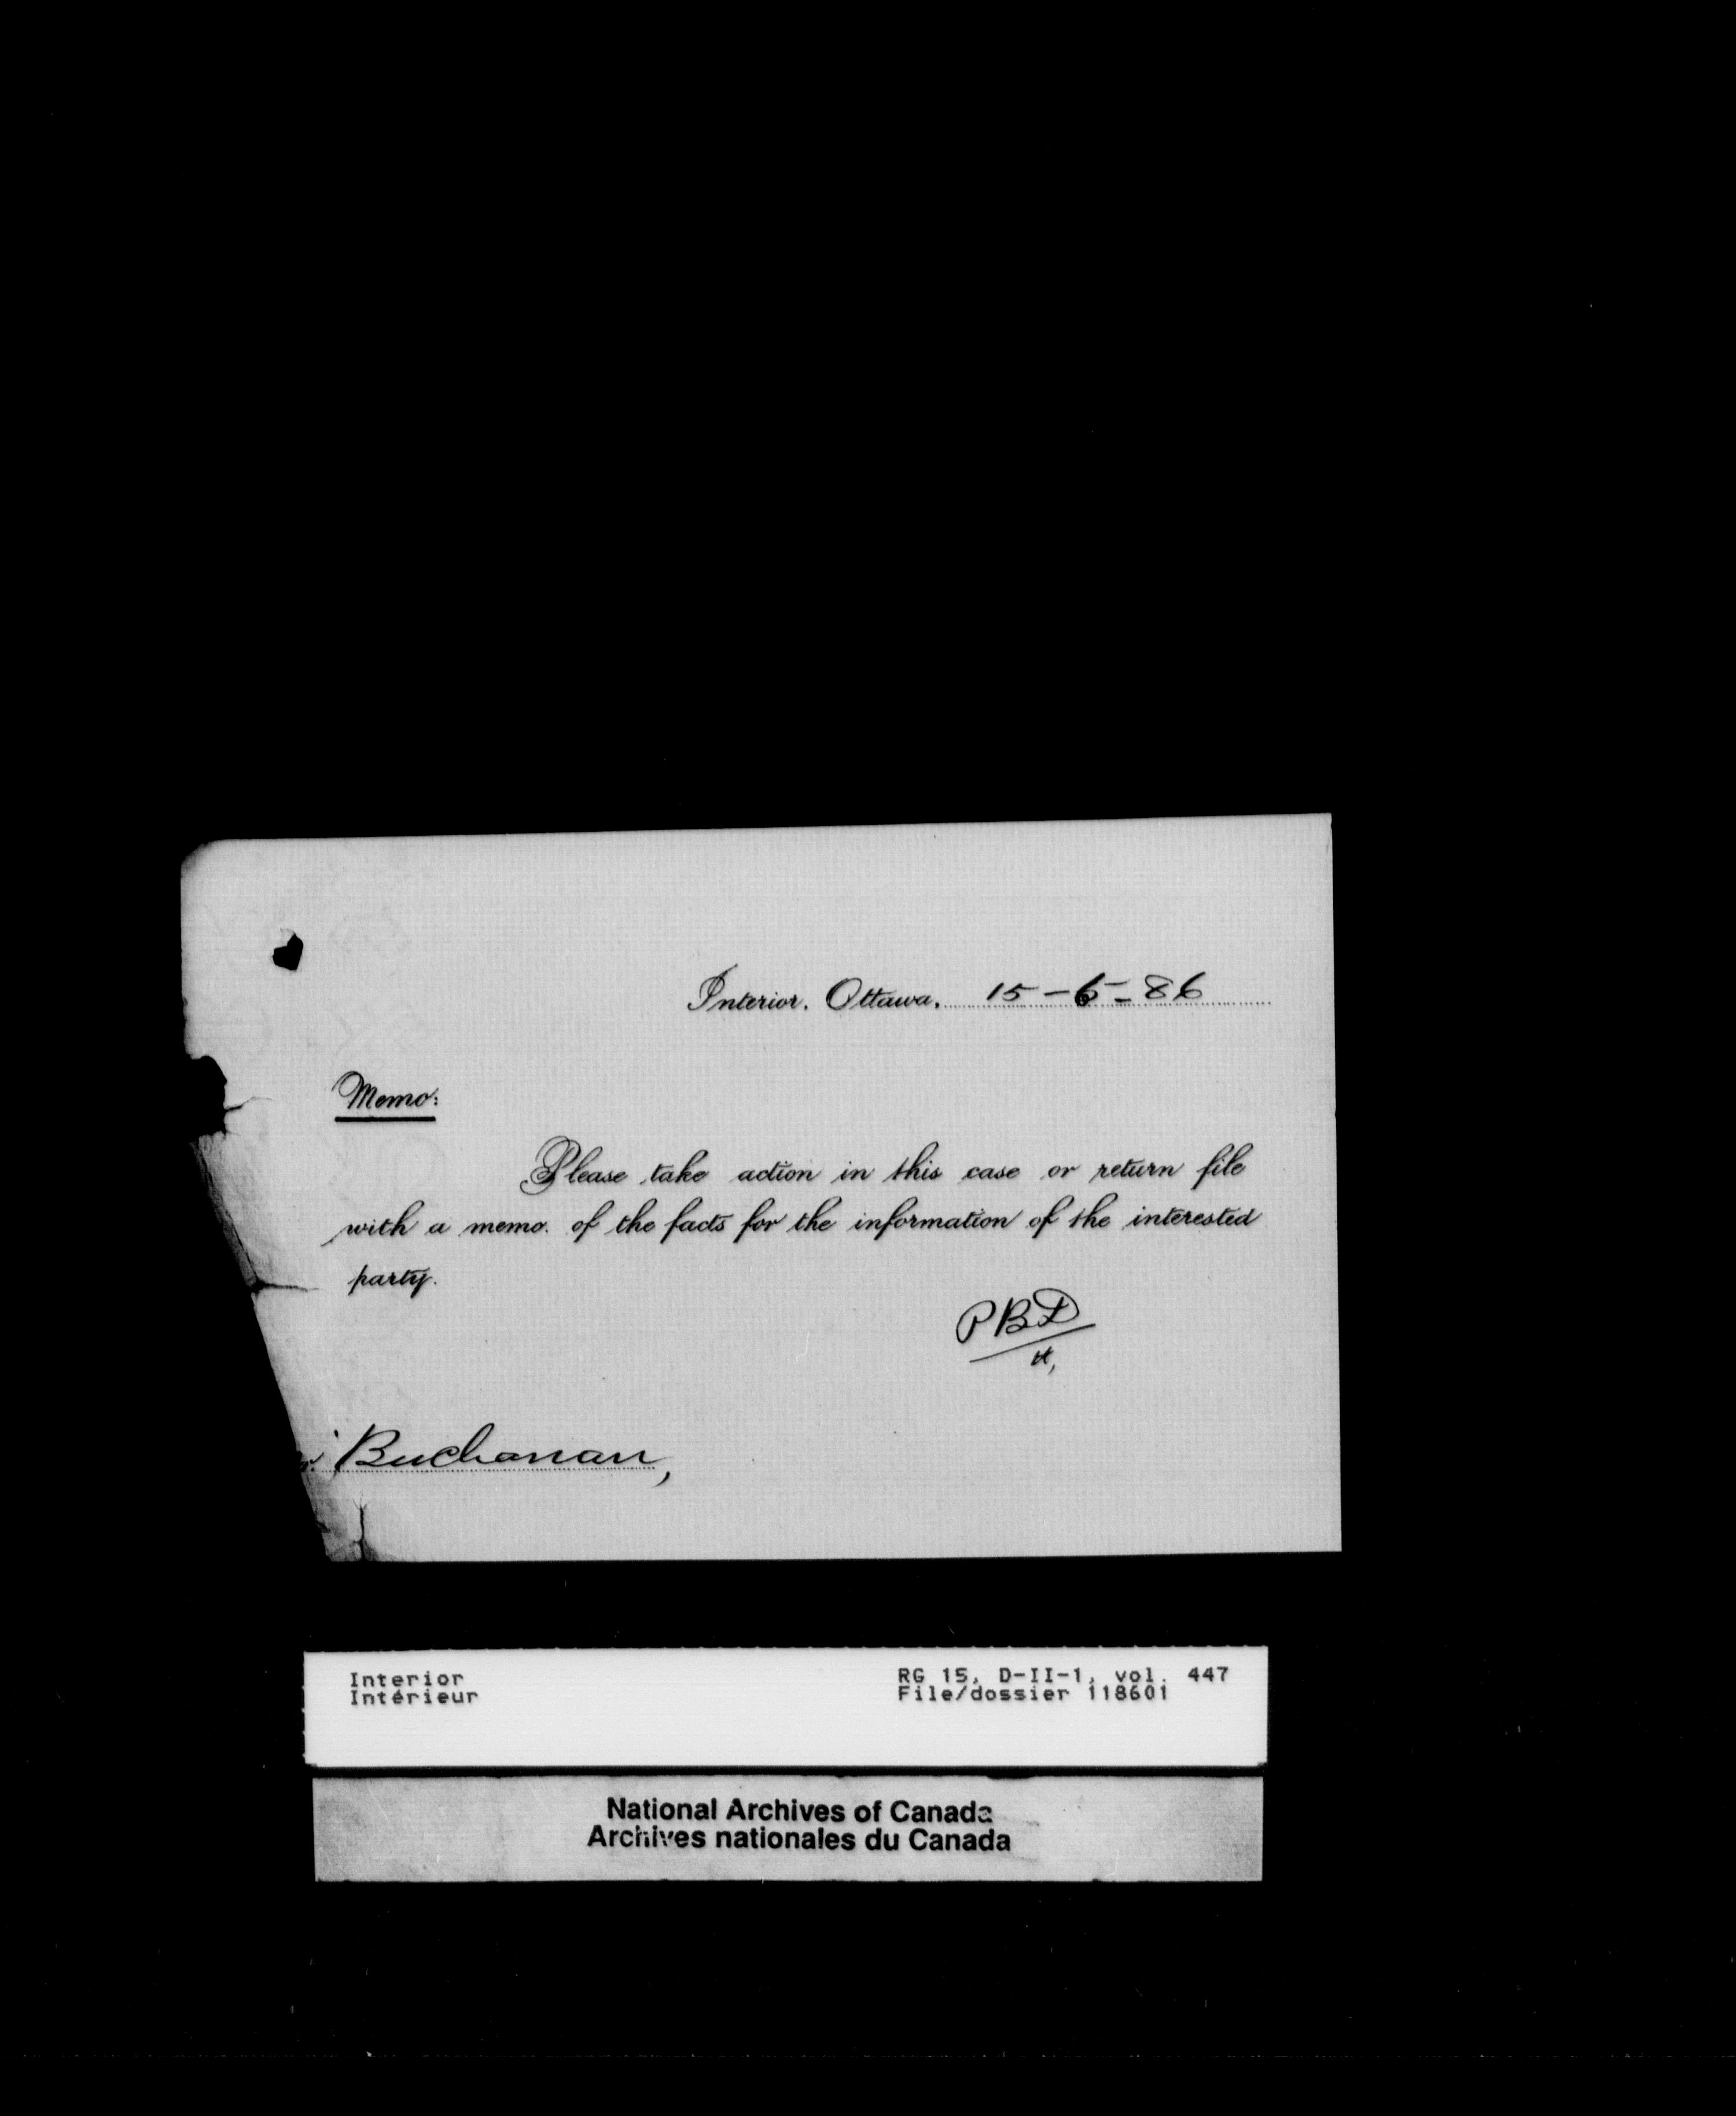 Interior. Ottawa. 15-6-86
Memo:
Please take action in this case or return file
with a memo. of the facts for the information of the interested
party.
PBD
Buchanan,
Interior
Intérieur
RG 15, D-II-1, vol. 447
File/dossier 118601
National Archives of Canada
Archives nationales du Canada